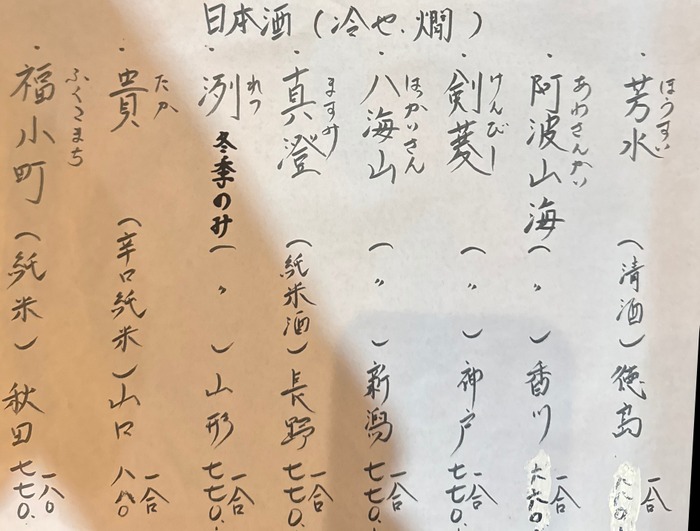 日本酒（冷や・燗）
・芳水（清酒）徳島 一合
ほうすい
・阿波山海（〃）香川 一合 六六〇
あわさんかい
・剣菱（〃）神戸 一合 七七〇.
けんびし
・八海山（〃）新潟 一合 七七〇.
はかいさん
・真澄（純米酒）長野 一合 七七〇.
ますみ
・洌 冬季のみ（〃）山形 一合 七七〇.
れつ
・貴（辛口純米）山口 一合 八八〇
たか
・福小町（純米）秋田 一合 七七〇.
ふくこまち